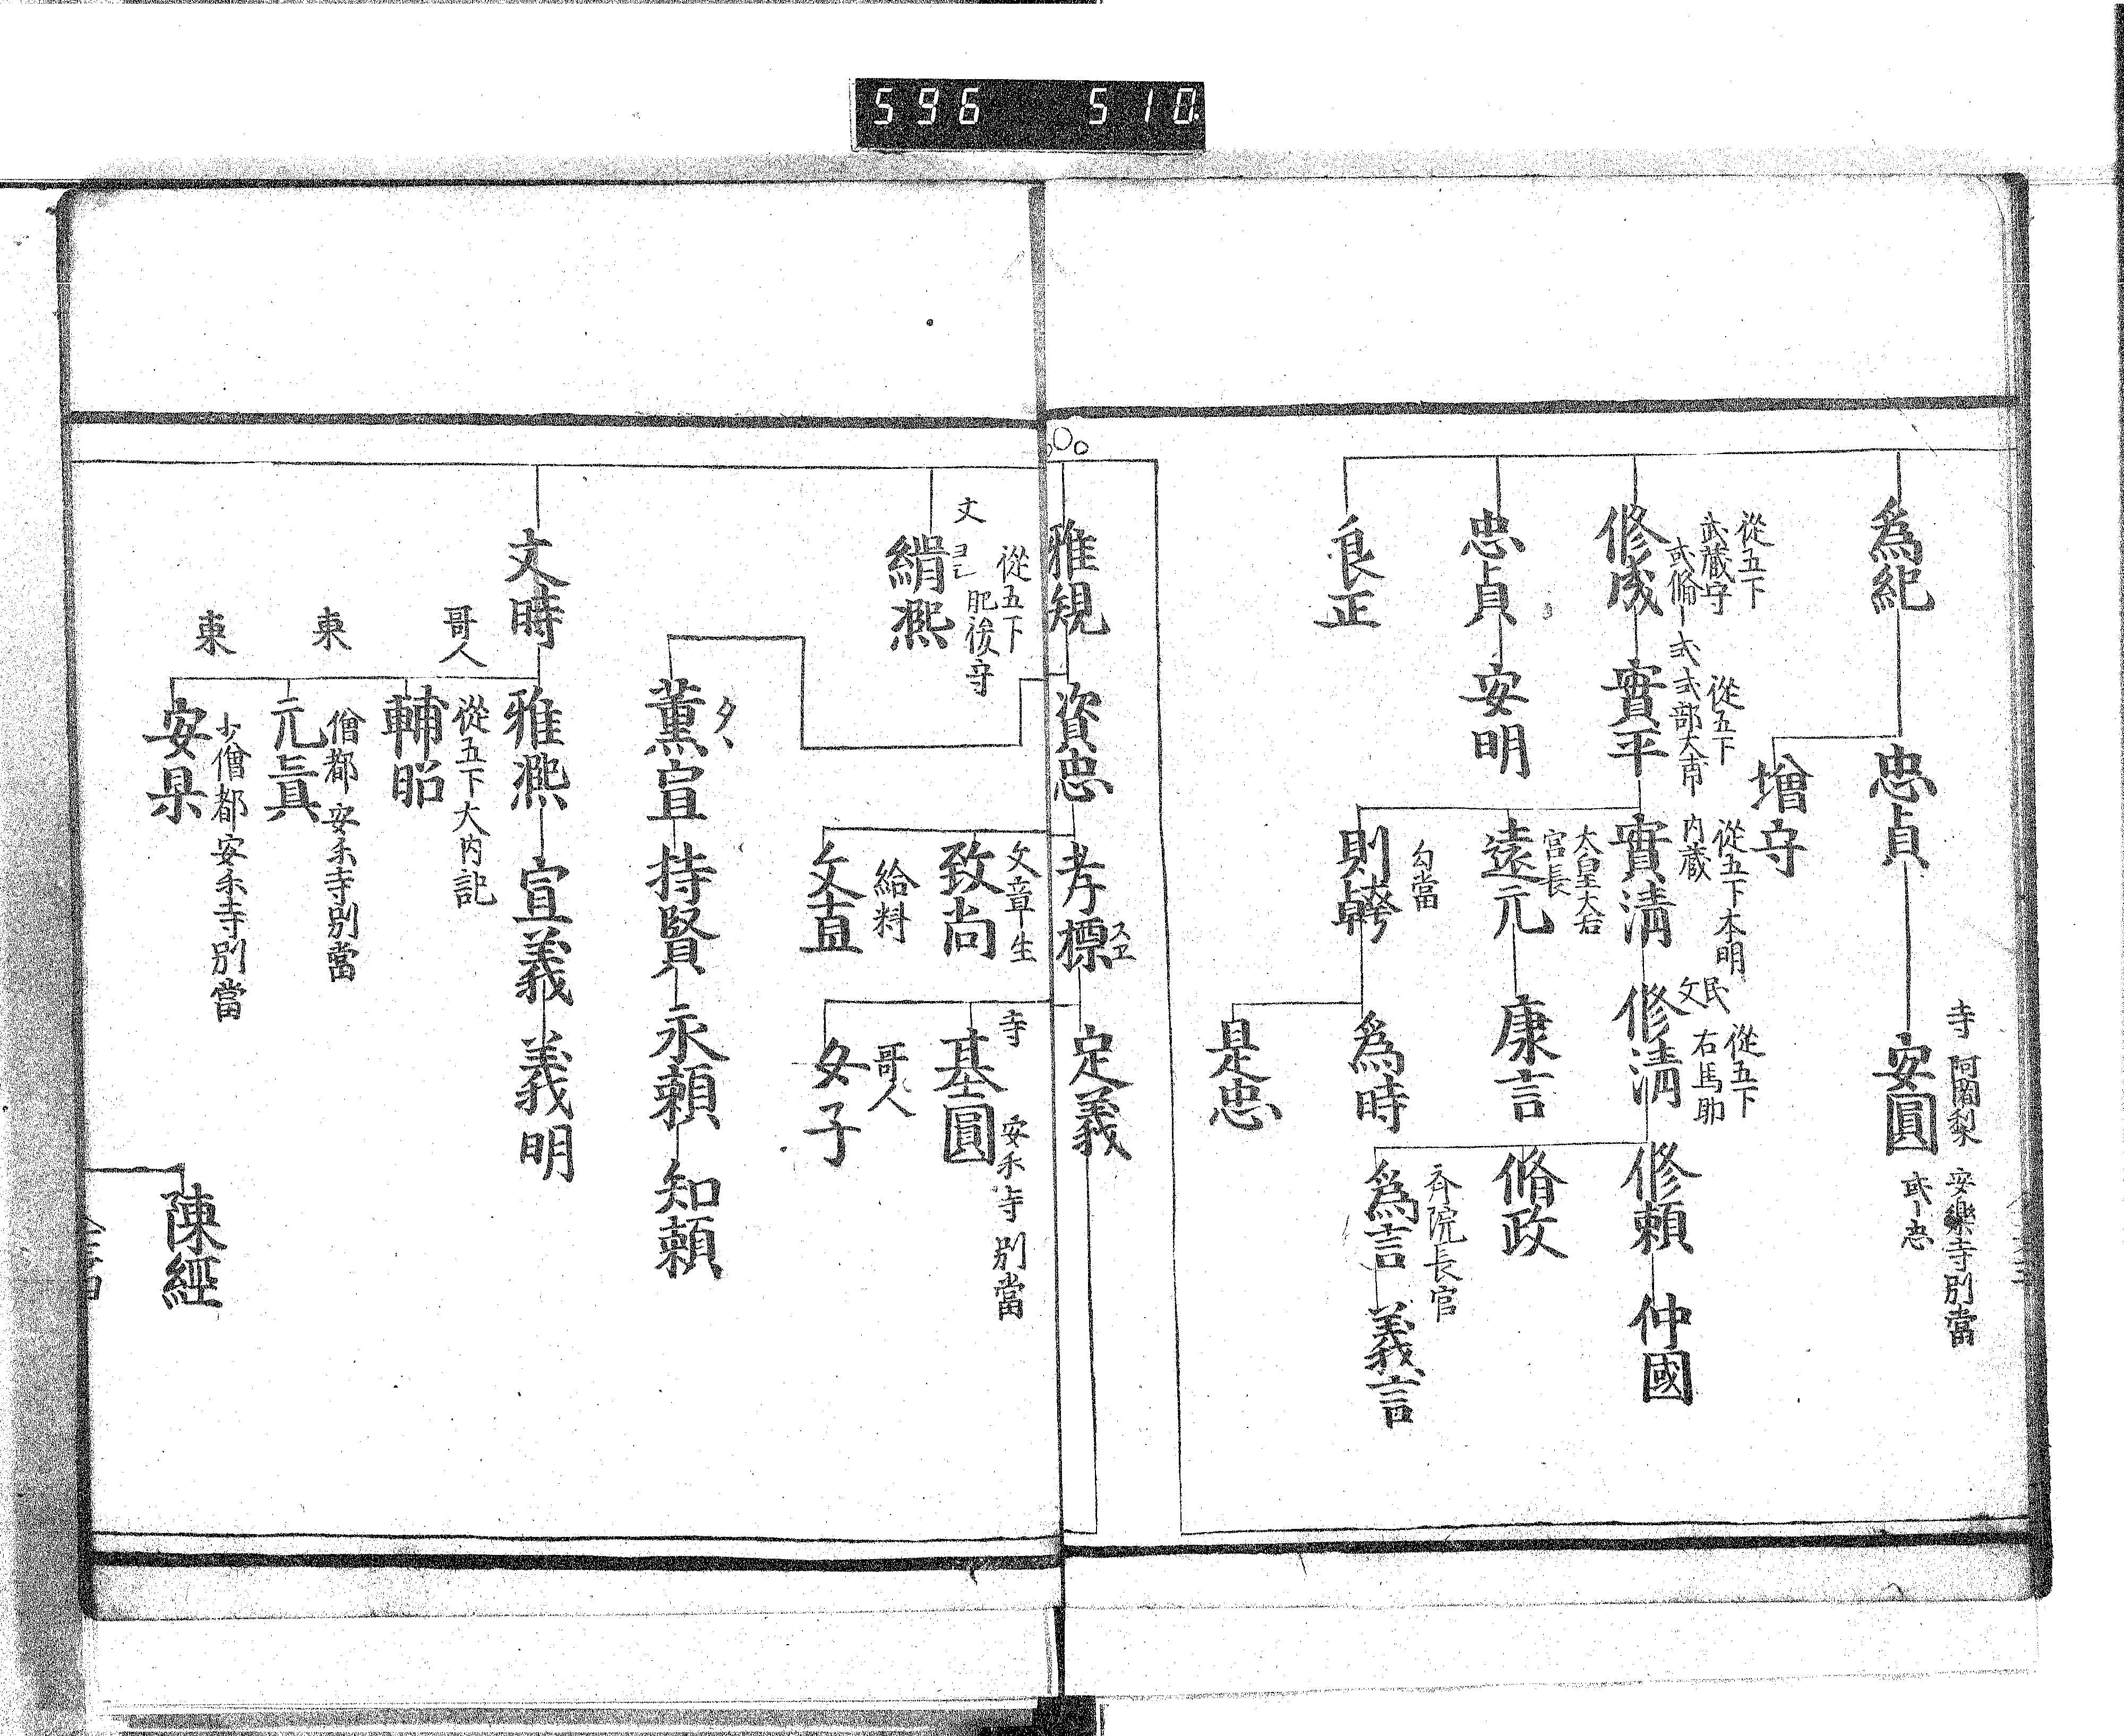 596 510
為紀
忠貞
増守
寺 阿闍梨
安樂寺別當
安圓
從五下
武藏守
修成
從五下
式部大甫
實平
從五下本明
内藏
實清
文民
從五下
右馬助
修清
修頼
仲國
脩政
齐院長官
為言
義言
大皇大后
宮長
遠元
康言
勾當
為時
是忠
忠貞
安明
良正
雅規
資忠
孝標
スエ
定義
文章生
致尚
給料
文直
寺
安禾寺別當
基圓
哥人
女子
文
從五下
肥後守
緝熈
薫宣
持賢
永頼
知頼
文時
雅熈
宣義
義明
哥人
從五下大内記
輔昭
東
僧都 安禾寺別當
元眞
東
少僧都安禾寺別當
安杲
陳經